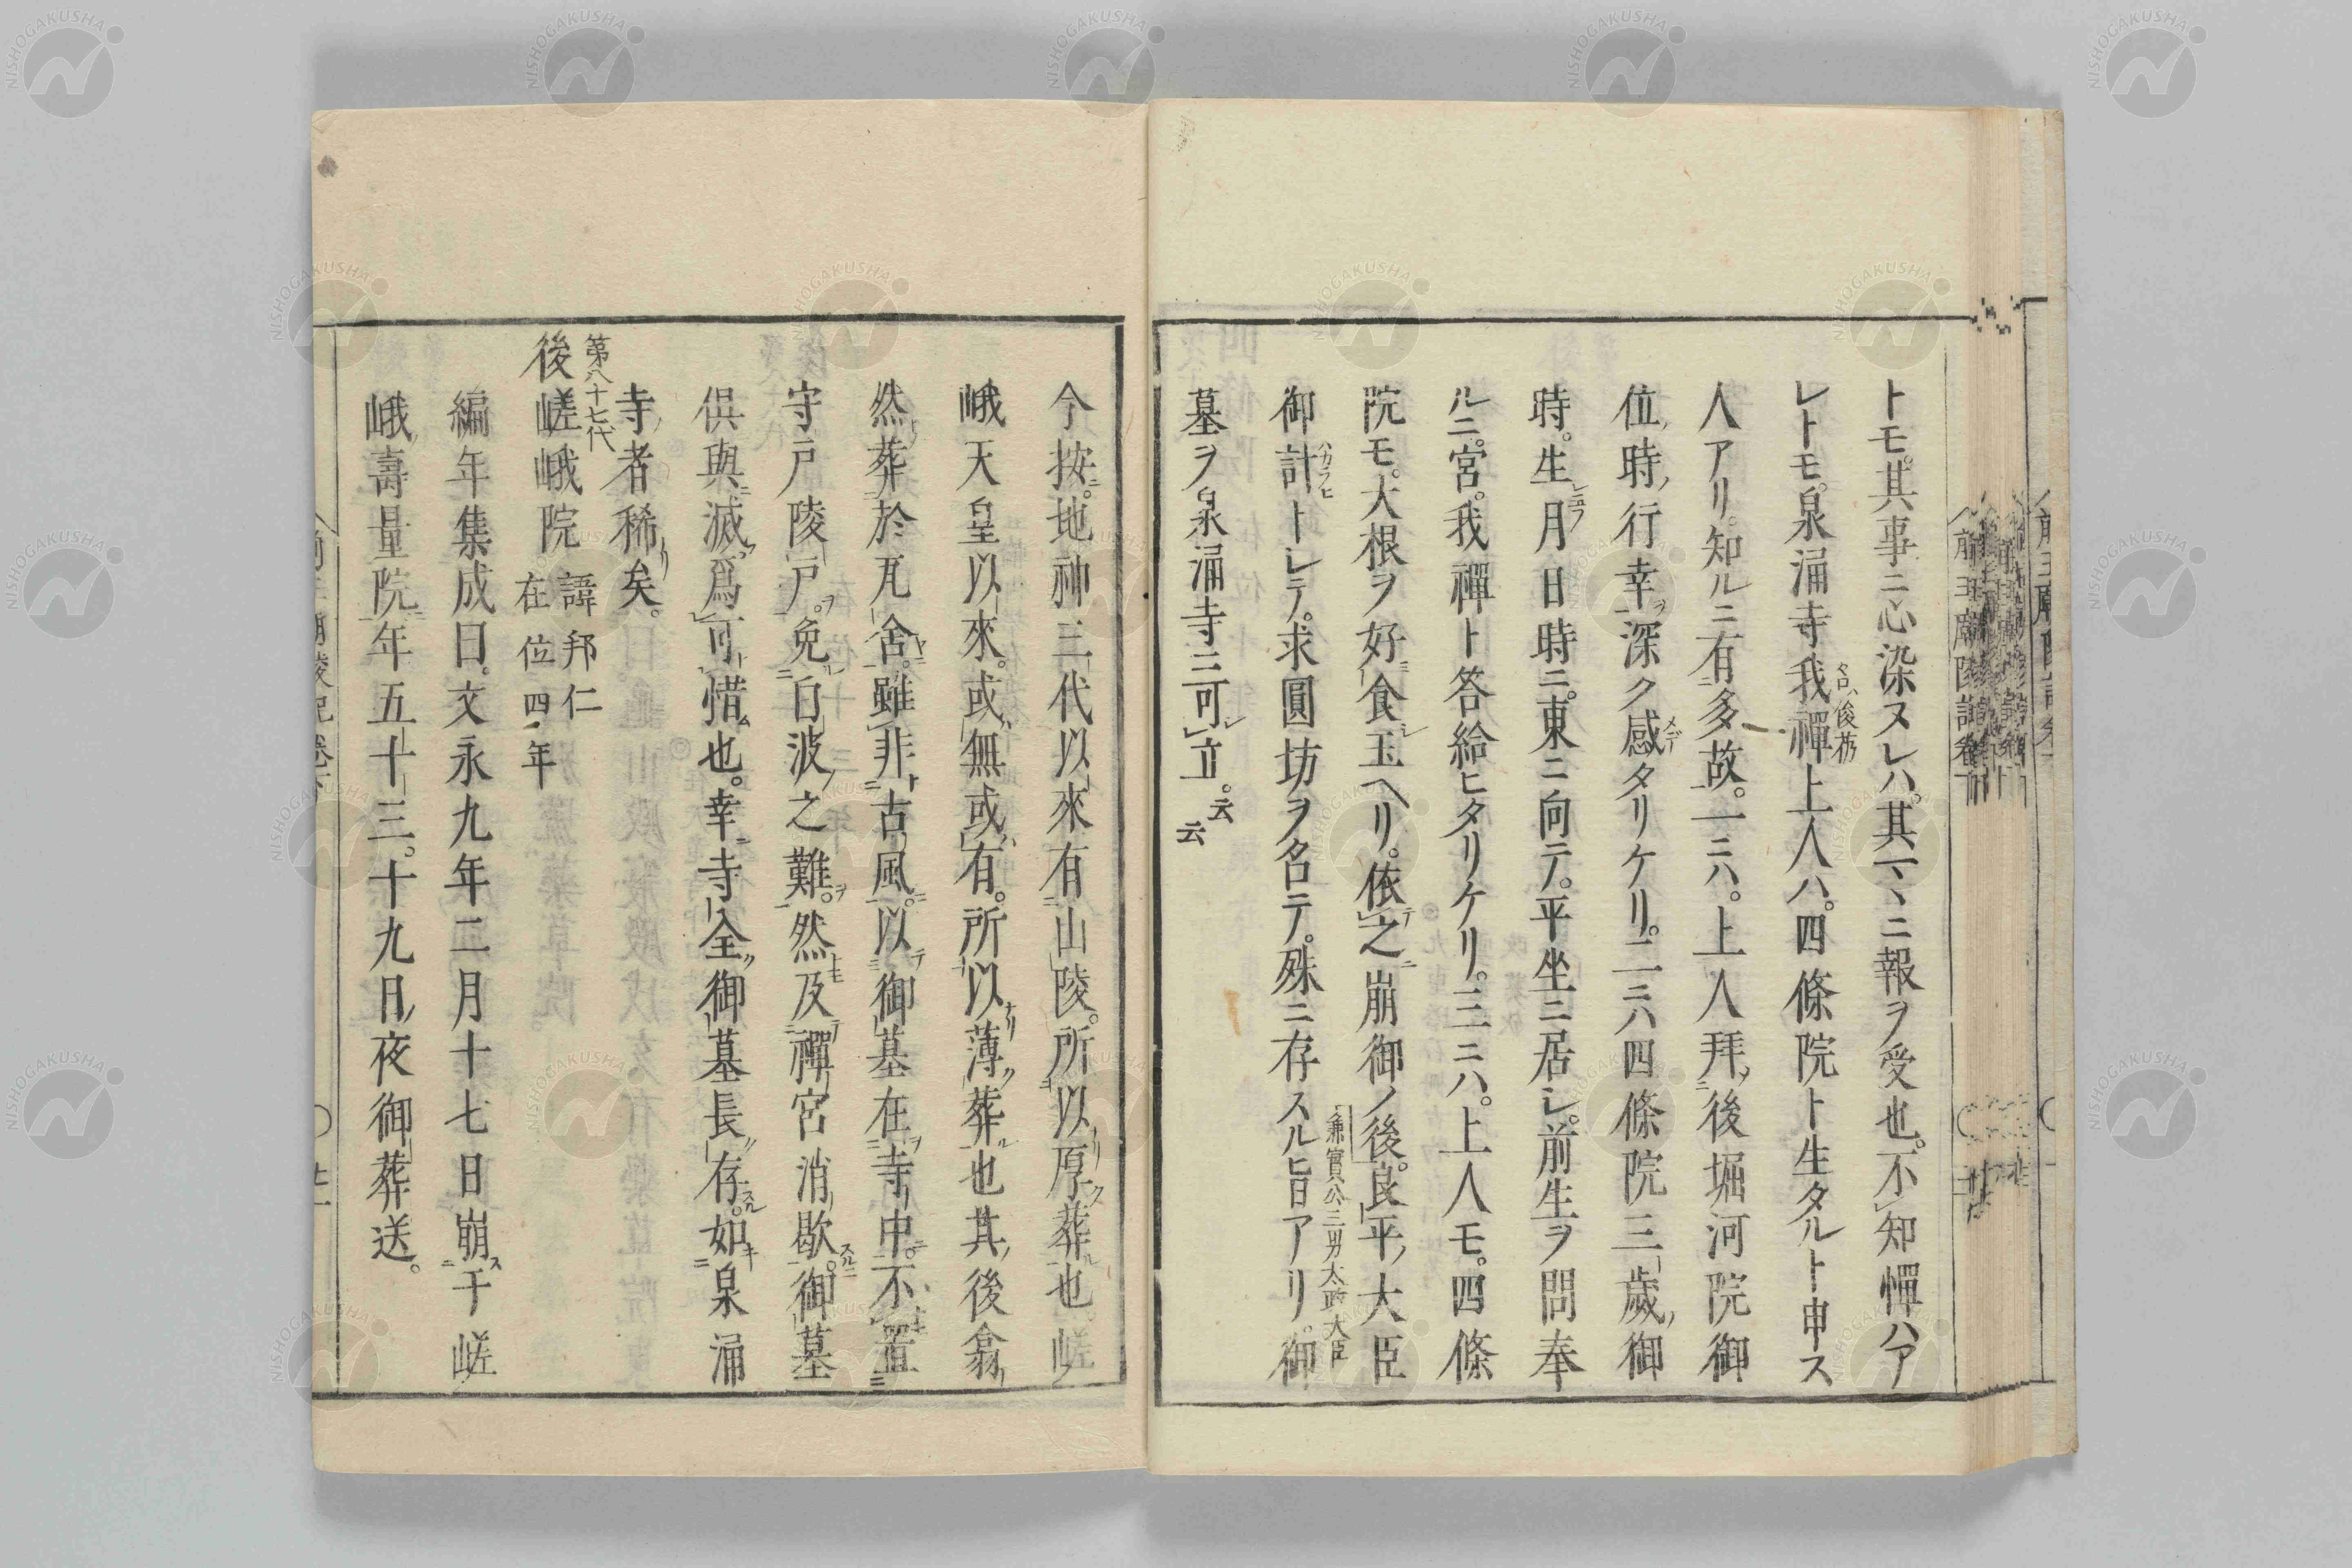 トモ。其事ニ心染ヌレハ。其マヽニ報ヲ受也。不知憚ハア
レトモ。泉涌寺我禪上人ハ。四條院ト生タルト申ス
人アリ。知ルニ有多故。一ニハ。上人拜後堀河院御
位ノ時ノ行幸ヲ深ク感タリケリ。二ニハ四條院三歲ノ御
時。生月日時ニ。東ニ向テ。平坐ニ居シ。前生ヲ問奉
ルニ。宮。我禪ト答給ヒタリケリ。三ニハ。上人モ。四條
院モ。大根ヲ好食玉ヘリ。依之崩御ノ後。良平ノ大臣
兼實公三男太政大臣
御計トシテ。求圓坊ヲ名テ。殊ニ存スル旨アリ。御
墓ヲ泉涌寺ニ可立。云云
今按。地神三代以來有山陵。所以厚葬也。嵯
峨天皇以來。或無或有。所以薄葬也其後翕
然葬於瓦舍。雖非古風。以御墓在寺中。不置
守戶陵戶。免白波之難。然及禪宮消歇。御墓
倶與滅。爲可惜也。幸寺全御墓長存。如泉涌
寺者稀矣。
第八十七代
後嵯峨院 諱邦仁
在位四年
編年集成曰。文永九年二月十七日崩于嵯
峨壽量院年五十三。十九日夜御葬送。
前王廟陵記卷下
NISHOGAKUSHA